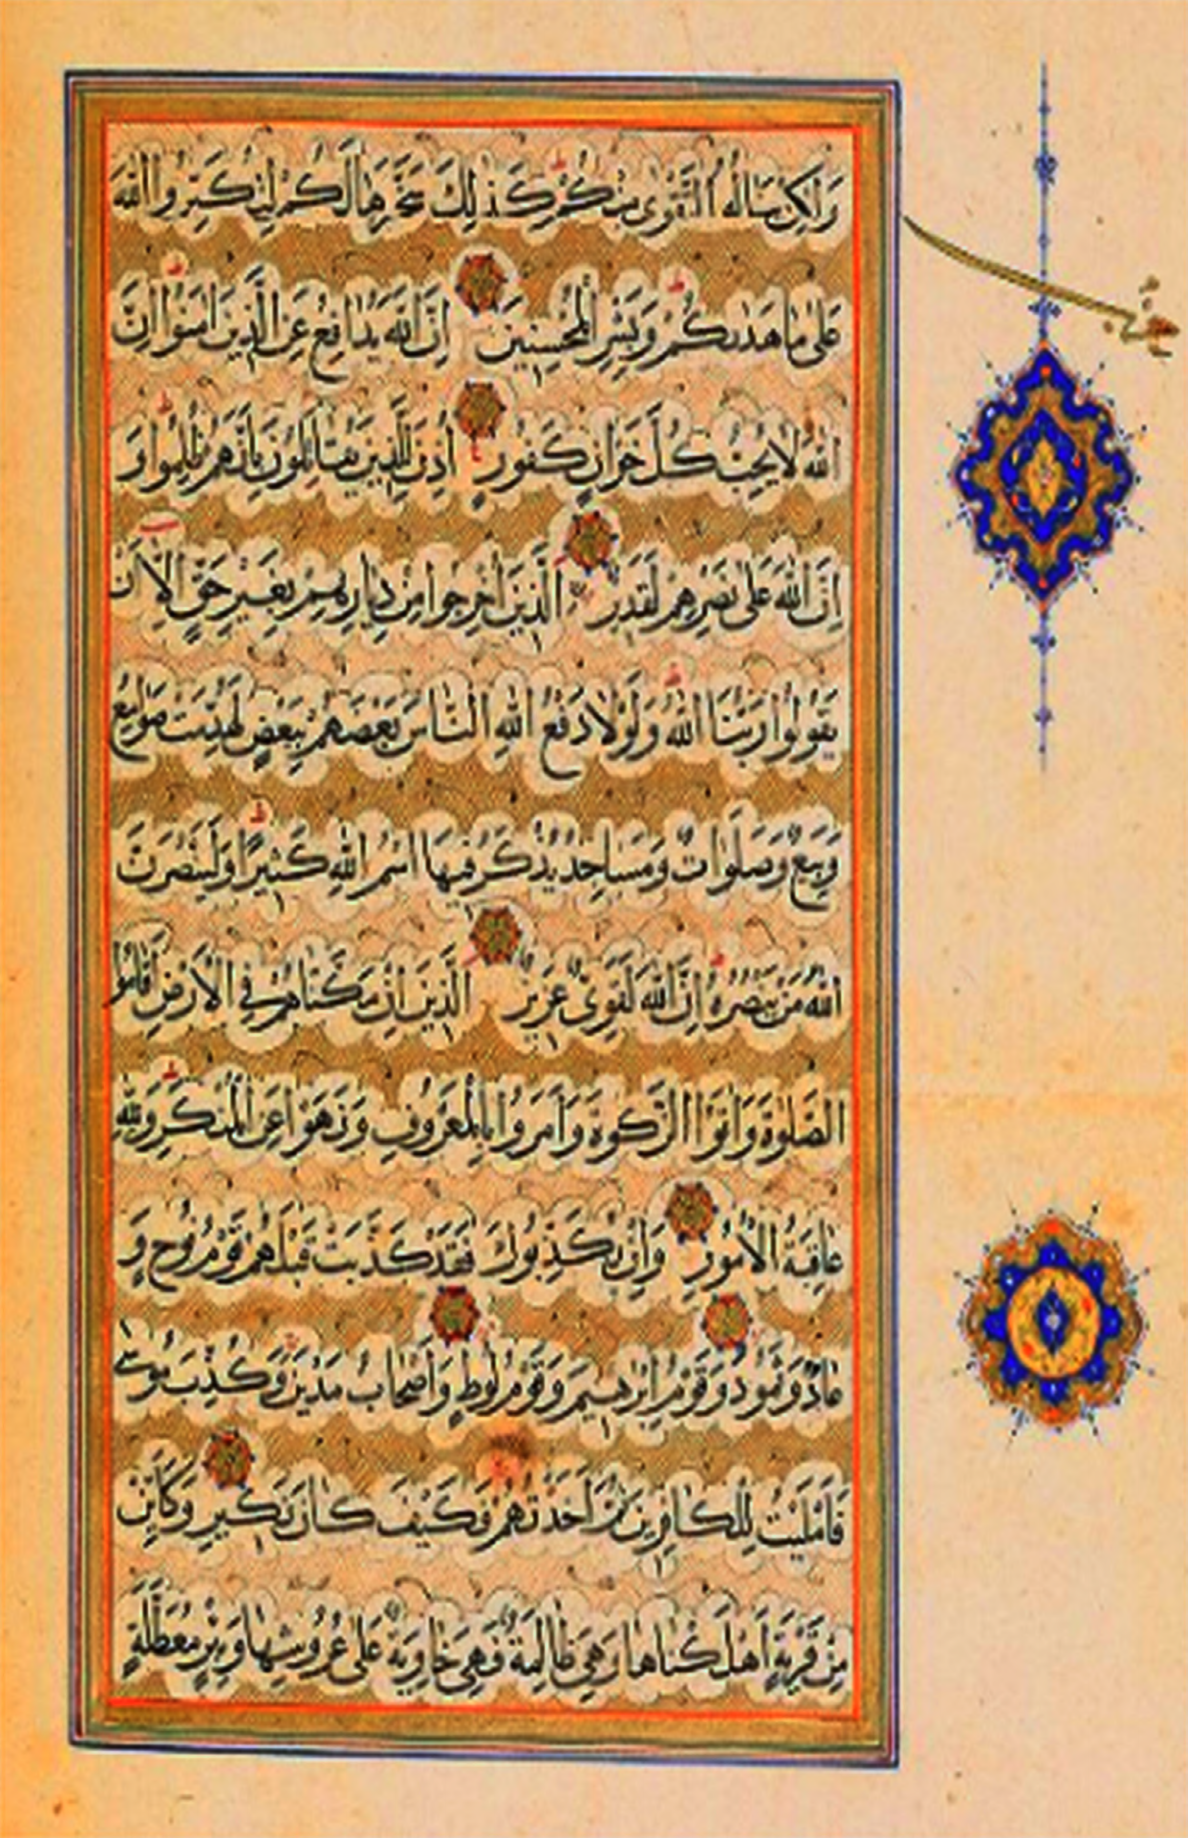 وَلٰكِنْ يَنَالُهُ التَّقْوٰى مِنْكُمْ كَذٰلِكَ سَخَّرَهَا لَكُمْ لِتُكَبِّرُوا اللّٰهَ
عَلٰى مَا هَدٰىكُمْ وَبَشِّرِ الْمُحْسِنِينَ اِنَّ اللّٰهَ يُدَافِعُ عَنِ الَّذِينَ اٰمَنُوا اِنَّ
اللّٰهَ لَا يُحِبُّ كُلَّ خَوَّانٍ كَفُورٍ اُذِنَ لِلَّذِينَ يُقَاتَلُونَ بِاَنَّهُمْ ظُلِمُوا وَ
اِنَّ اللّٰهَ عَلٰى نَصْرِهِمْ لَقَدِيرٌ الَّذِينَ اُخْرِجُوا مِنْ دِيَارِهِمْ بِغَيْرِ حَقٍّ اِلَّا اَنْ
يَقُولُوا رَبُّنَا اللّٰهُ وَلَوْلَا دَفْعُ اللّٰهِ النَّاسَ بَعْضَهُمْ بِبَعْضٍ لَهُدِّمَتْ صَوَامِعُ
وَبِيَعٌ وَصَلَوَاتٌ وَمَسَاجِدُ يُذْكَرُ فِيهَا اسْمُ اللّٰهِ كَثِيرًا وَلَيَنْصُرَنَّ
اللّٰهُ مَنْ يَنْصُرُهُ اِنَّ اللّٰهَ لَقَوِيٌّ عَزِيزٌ الَّذِينَ اِنْ مَكَّنَّاهُمْ فِي الْاَرْضِ اَقَامُوا
الصَّلٰوةَ وَاٰتَوُا الزَّكٰوةَ وَاَمَرُوا بِالْمَعْرُوفِ وَنَهَوْا عَنِ الْمُنْكَرِ وَلِلّٰهِ
عَاقِبَةُ الْاُمُورِ وَاِنْ يُكَذِّبُوكَ فَقَدْ كَذَّبَتْ قَبْلَهُمْ قَوْمُ نُوحٍ وَ
عَادٌ وَثَمُودُ وَقَوْمُ اِبْرٰهِيمَ وَقَوْمُ لُوطٍ وَاَصْحَابُ مَدْيَنَ وَكُذِّبَ مُوسٰى
فَاَمْلَيْتُ لِلْكَافِرِينَ ثُمَّ اَخَذْتُهُمْ فَكَيْفَ كَانَ نَكِيرِ وَكَاَيِّنْ
مِنْ قَرْيَةٍ اَهْلَكْنَاهَا وَهِيَ ظَالِمَةٌ فَهِيَ خَاوِيَةٌ عَلٰى عُرُوشِهَا وَبِئْرٍ مُعَطَّلَةٍ